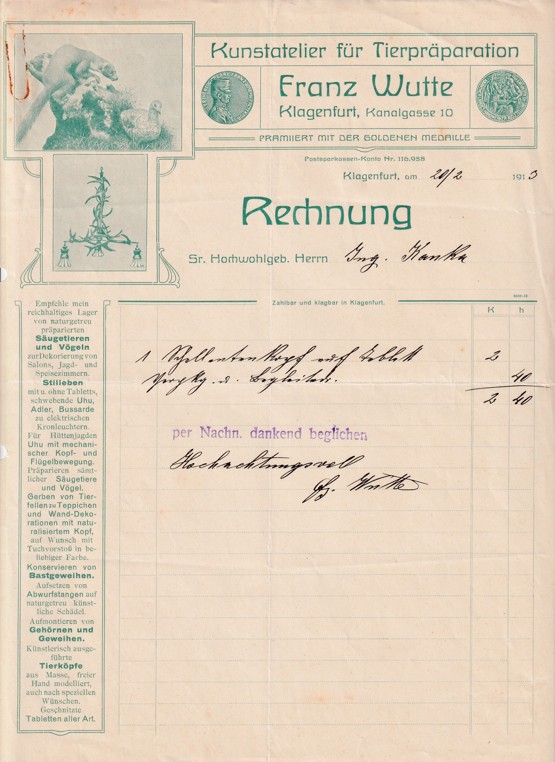 Kunstatelier für Tierpräparation
Franz Wutte
Klagenfurt, Kanalgasse 10
PRÄMIIERT MIT DER GOLDENEN MEDAILLE
Postsparkassen-Konto Nr. 116.958
Klagenfurt, am 20/2 1913
Rechnung
Sr. Hochwohlgeb. Herrn Ing. Kanka
Zahlbar und klagbar in Klagenfurt.
K h
1 Schellentenkopf auf Tablett 2
40
2 40
per Nachn. dankend beglichen
Hochachtungsvoll
Wutte
Empfehle mein
reichhaltiges Lager
von naturgetreu
präparierten
Säugetieren
und Vögeln
zur Dekorierung von
Salons, Jagd- und
Speisezimmern.
Stilleben
mit u. ohne Tabletts,
schwebende Uhu,
Adler, Bussarde
zu elektrischen
Kronleuchtern.
Für Hüttenjagden
Uhu mit mechani-
scher Kopf- und
Flügelbewegung.
Präparieren sämt-
licher Säugetiere
und Vögel.
Gerben von Tier-
fellen zu Teppichen
und Wand-Deko-
rationen mit natu-
ralisiertem Kopf,
auf Wunsch mit
Tuchvorstoß in be-
liebiger Farbe.
Konservieren von
Bastgeweihen.
Aufsetzen von
Abwurfstangen auf
naturgetreu künst-
liche Schädel.
Aufmontieren von
Gehörnen und
Geweihen.
Künstlerisch ausge-
führte
Tierköpfe
aus Masse, freier
Hand modelliert,
auch nach speziellen
Wünschen.
Geschnitzte
Tabletten aller Art.